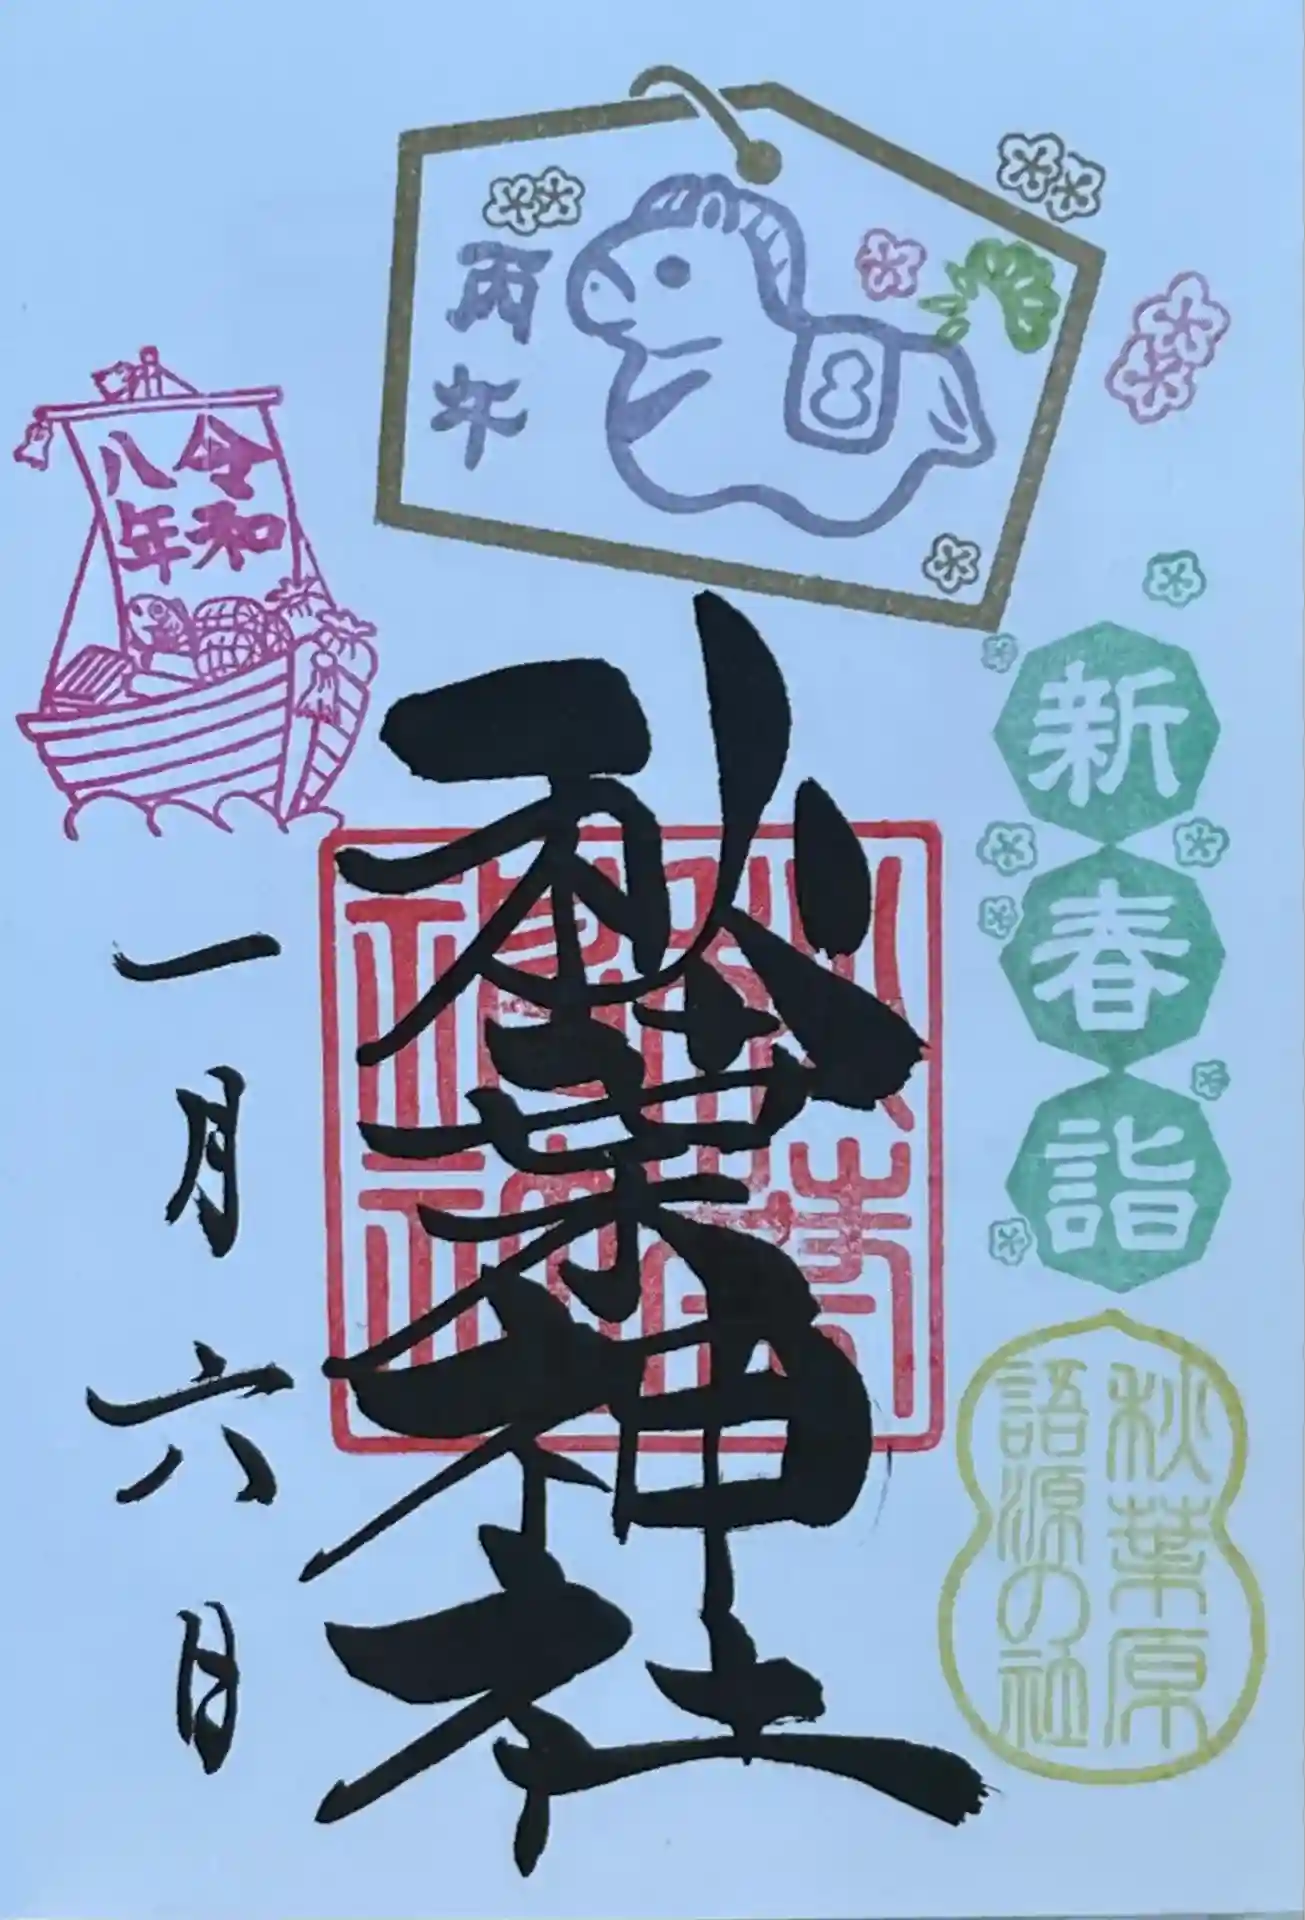 丙午
新春詣
秋葉原
語源の社
秋葉神社
令和
八年
一月六日